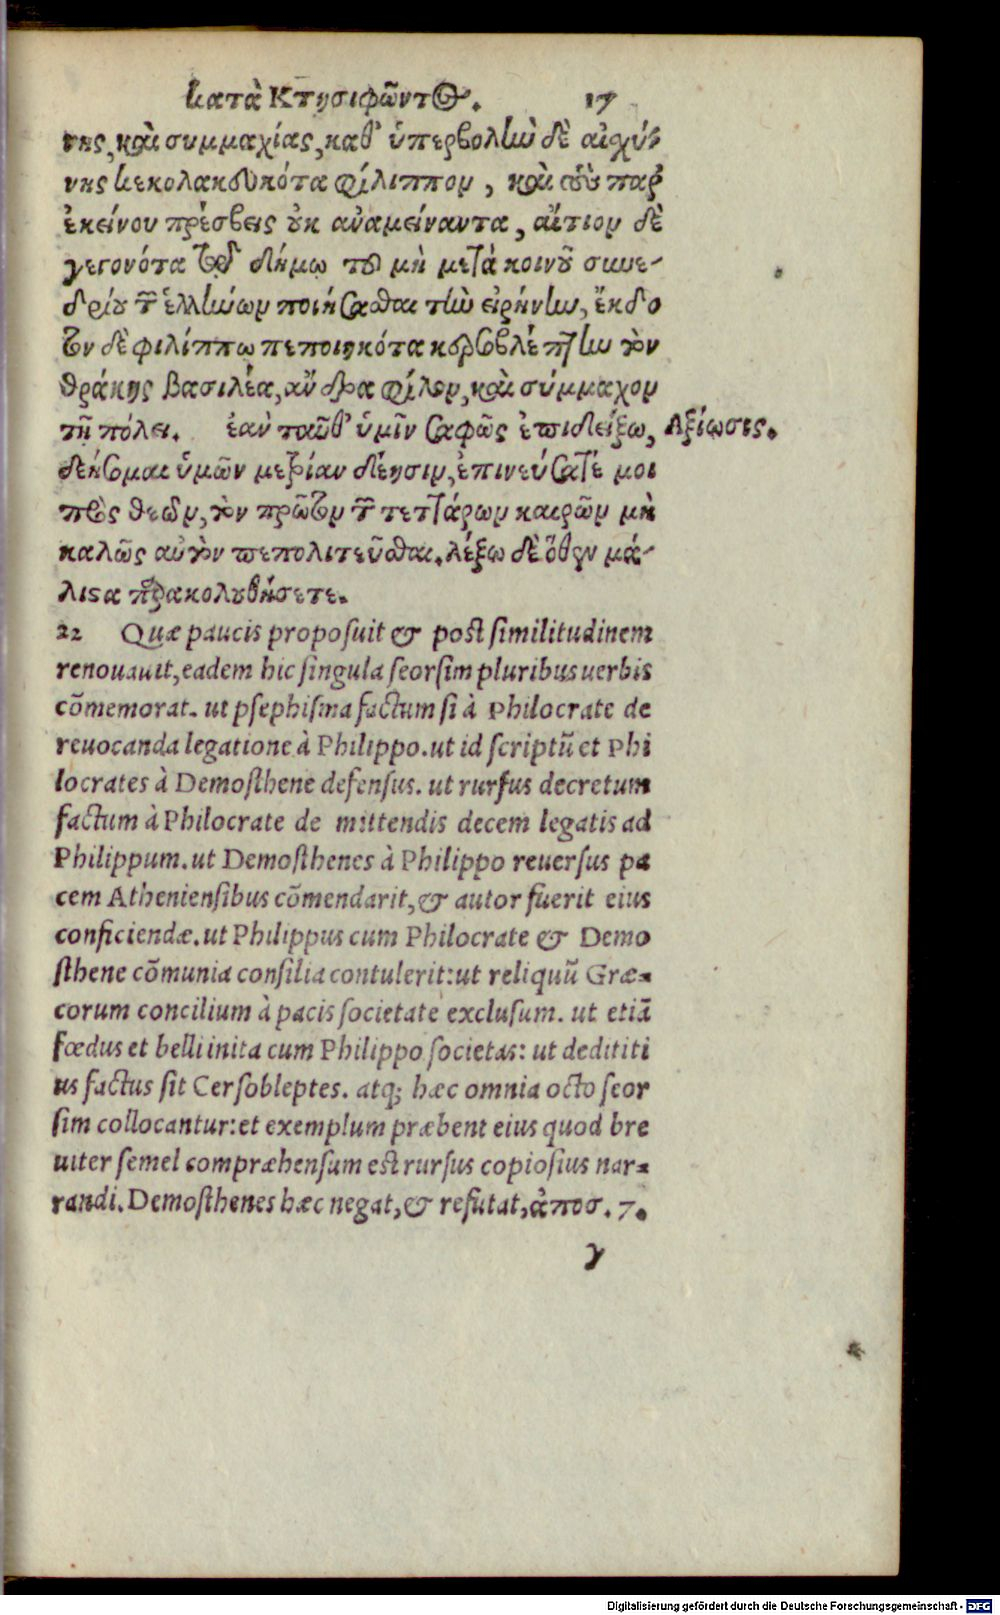 κατὰ Κτησιφῶντος. 17
νης, καὶ συμμαχίας, καθ' ὑπερβολὴν δὲ αἰσχύ-
νης κεκολακευκότα φίλιππον, καὶ τοὺς παρ'
ἐκείνου πρέσβεις οὐκ ἀναμείναντα, αἴτιον δὲ
γεγονότα τῷ δήμῳ τοῦ μὴ μετὰ κοινοῦ συνε-
δρίου τῶν ἑλλήνων ποιήσασθαι τὴν εἰρήνην, ἔκδο
τον δὲ φιλίππῳ πεποιηκότα κερσοβλέπτην τὸν
θράκης βασιλέα, ἄνδρα φίλον, καὶ σύμμαχον
τῇ πόλει. ἐὰν ταῦθ' ὑμῖν σαφῶς ἐπιδείξω, Ἀξίωσις.
δεήσομαι ὑμῶν μετρίαν δέησιν, ἐπινεύσατέ μοι
πρὸς θεῶν, τὸν πρῶτον τῶν τεττάρων καιρῶν μὴ
καλῶς αὐτὸν πεπολιτεῦσθαι. λέξω δὲ ὅθεν μά-
λιστα παρακολουθήσετε.
22 Quæ paucis proposuit & post similitudinem
renouauit, eadem hic singula seorsim pluribus uerbis
cõmemorat. ut psephisma factum si à Philocrate de
reuocanda legatione à Philippo. ut id scriptũ et Phi
locrates à Demosthene defensus. ut rursus decretum
factum à Philocrate de mittendis decem legatis ad
Philippum. ut Demosthenes à Philippo reuersus pa
cem Atheniensibus cõmendarit, & autor fuerit eius
conficiendæ. ut Philippus cum Philocrate & Demo
sthene cõmunia consilia contulerit: ut reliquũ Græ=
corum concilium à pacis societate exclusum. ut etiã
fœdus et belli inita cum Philippo societas: ut dedititi
us factus sit Cersobleptes. atq; hæc omnia octo seor
sim collocantur: et exemplum præbent eius quod bre
uiter semel compræhensum est rursus copiosius nar=
randi. Demosthenes hæc negat, & refutat, ἀποσ. 7.
γ
Digitalisierung gefördert durch die Deutsche Forschungsgemeinschaft - DFG